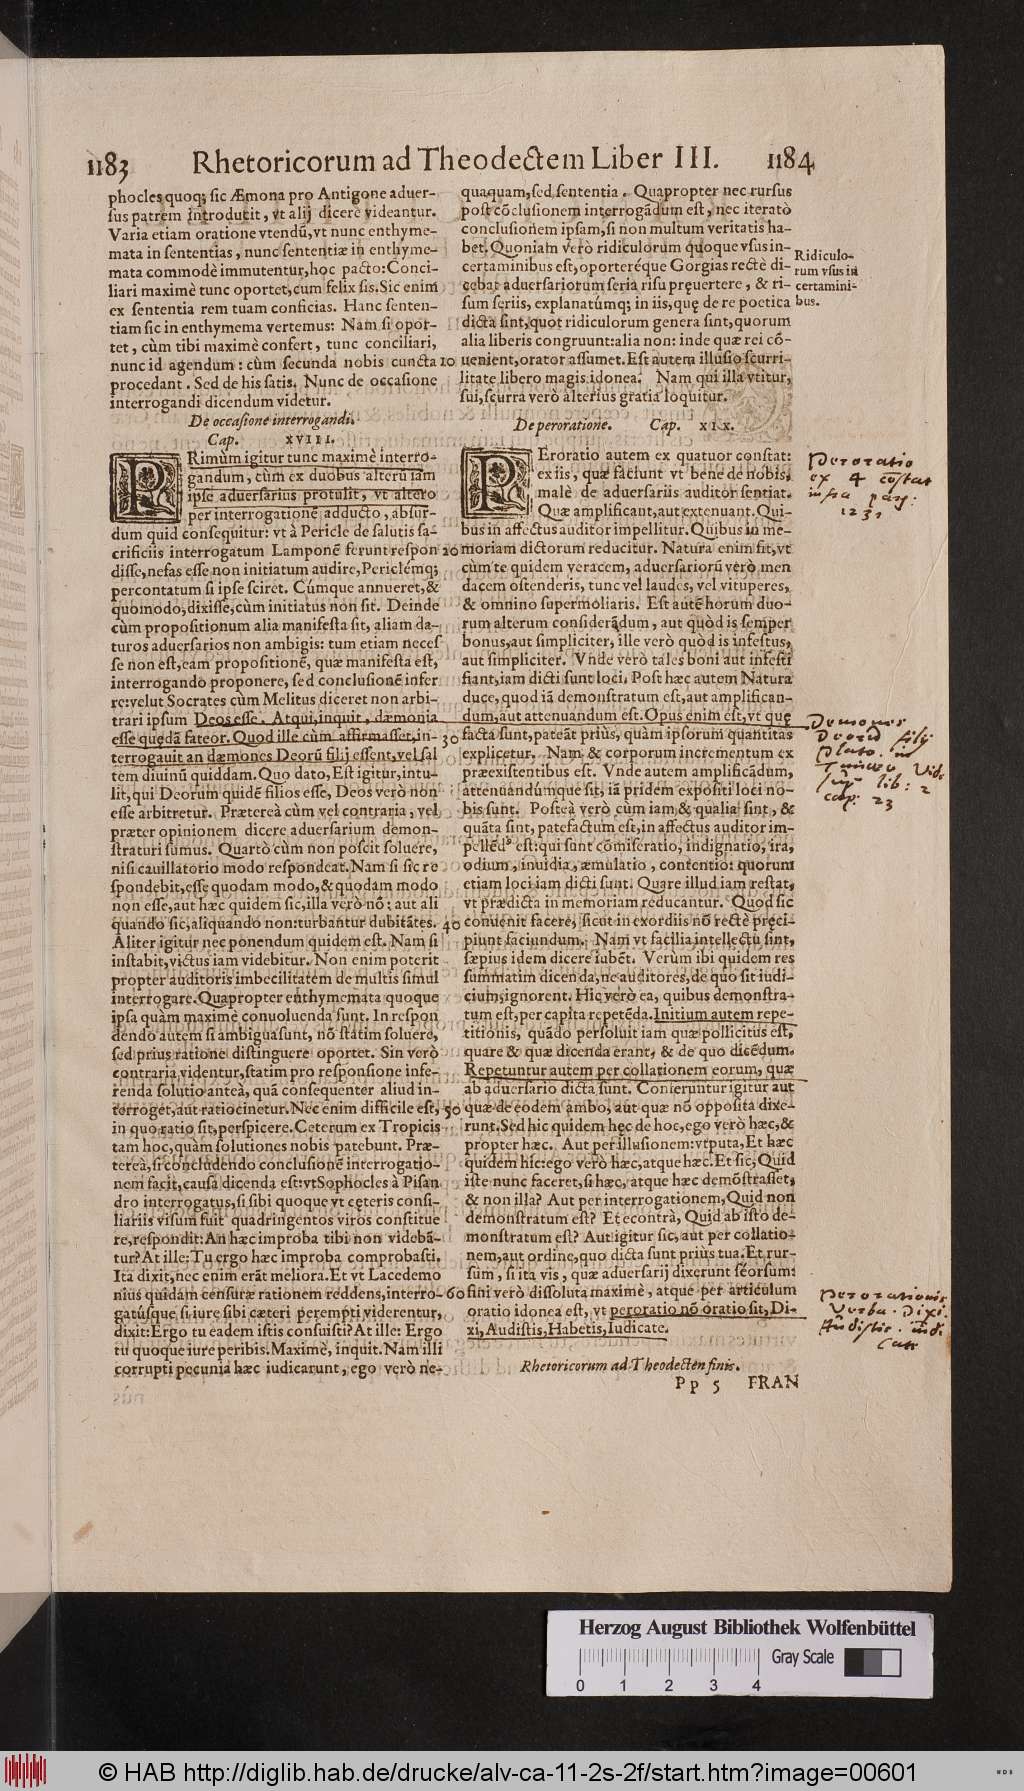 1183 Rhetoricorum ad Theodectem Liber III. 1184
phocles quoq; sic Æmona pro Antigone aduer-
sus patrem introducit, vt alij dicere videantur.
Varia etiam oratione vtendũ, vt nunc enthyme-
mata in sententias, nunc sententiæ in enthyme-
mata commodè immutentur, hoc pacto: Conci-
liari maximè tunc oportet, cum felix sis. Sic enim
ex sententia rem tuam conficias. Hanc senten-
tiam sic in enthymema vertemus: Nam si opor-
tet, cùm tibi maximè confert, tunc conciliari,
nunc id agendum: cùm secunda nobis cuncta
procedant. Sed de his satis. Nunc de occasione
interrogandi dicendum videtur.
De occasione interrogandi.
Cap. XVIII.
PRimùm igitur tunc maximè interro-
gandum, cùm ex duobus alterũ iam
ipse aduersarius protulit, vt altero
per interrogationẽ adducto, absur-
dum quid consequitur: vt à Pericle de salutis sa-
crificiis interrogatum Lamponẽ ferunt respon
disse, nefas esse non initiatum audire, Periclémq;
percontatum si ipse sciret. Cúmque annueret, &
quomodo, dixisse, cùm initiatus non sit. Deinde
cùm propositionum alia manifesta sit, aliam da-
turos aduersarios non ambigis: tum etiam neces
se non est, eam propositionẽ, quæ manifesta est,
interrogando proponere, sed conclusionẽ infer
re: velut Socrates cùm Melitus diceret non arbi-
trari ipsum Deos esse. Atqui, inquit, dæmonia
esse quędã fateor. Quod ille cùm affirmasset, in-
terrogauit an dæmones Deorũ filij essent, vel sal
tem diuinũ quiddam. Quo dato, Est igitur, intu-
lit, qui Deorum quidẽ filios esse, Deos verò non
esse arbitretur. Prætereà cùm vel contraria, vel
præter opinionem dicere aduersarium demon-
straturi sumus. Quartò cùm non poscit soluere,
nisi cauillatorio modo respondeat. Nam si sic re
spondebit, esse quodam modo, & quodam modo
non esse, aut hæc quidem sic, illa verò nõ: aut ali
quando sic, aliquando non: turbantur dubitãtes.
Aliter igitur nec ponendum quidem est. Nam si
instabit, victus iam videbitur. Non enim poterit
propter auditoris imbecilitatem de multis simul
interrogare. Quapropter enthymemata quoque
ipsa quàm maximè conuoluenda sunt. In respon
dendo autem si ambigua sunt, nõ statim soluere,
sed prius ratione distinguere oportet. Sin verò
contraria videntur, statim pro responsione infe-
renda solutio anteà, quã consequenter aliud in-
terroget, aut ratiocinetur. Nec enim difficile est,
in quo ratio sit, perspicere. Ceterum ex Tropicis
tam hoc, quàm solutiones nobis patebunt. Præ-
tereà, si concludendo conclusionẽ interrogatio-
nem facit, causa dicenda est: vt Sophocles à Pisan
dro interrogatus, si sibi quoque vt cęteris consi-
liariis visum fuit quadringentos viros constitue
re, respondit: An hæc improba tibi non videbã-
tur? At ille: Tu ergo hæc improba comprobasti.
Ita dixit, nec enim erãt meliora. Et vt Lacedemo
nius quidam censuræ rationem reddens, interro-
gatúsque si iure sibi cæteri perempti viderentur,
dixit: Ergo tu eadem istis consuisti? At ille: Ergo
tu quoque iure peribis. Maximè, inquit. Nam illi
corrupti pecunia hæc iudicarunt, ego verò ne-
10
20
30
40
50
60
quaquam, sed sententia. Quapropter nec rursus
post cõclusionem interrogãdum est, nec iteratò
conclusionem ipsam, si non multum veritatis ha-
bet. Quoniam verò ridiculorum quoque vsus in
certaminibus est, oporteréque Gorgias rectè di-
cebat aduersariorum seria risu pręuertere, & ri-
sum seriis, explanatúmq; in iis, quę de re poetica
dicta sint, quot ridiculorum genera sint, quorum
alia liberis congruunt: alia non: inde quæ rei cõ-
uenient, orator assumet. Est autem illusio scurri-
litate libero magis idonea. Nam qui illa vtitur,
sui, scurra verò alterius gratia loquitur.
De peroratione. Cap. XIX.
PEroratio autem ex quatuor constat:
ex iis, quæ faciunt vt bene de nobis,
malè de aduersariis auditor sentiat.
Quæ amplificant, aut extenuant. Qui-
bus in affectus auditor impellitur. Quibus in me-
moriam dictorum reducitur. Natura enim fit, vt
cùm te quidem veracem, aduersariorũ verò men
dacem ostenderis, tunc vel laudes, vel vituperes,
& omnino supermoliaris. Est autẽ horum duo-
rum alterum considerãdum, aut quòd is semper
bonus, aut simpliciter, ille verò quòd is infestus,
aut simpliciter. Vnde verò tales boni aut infesti
fiant, iam dicti sunt loci. Post hæc autem Natura
duce, quod iã demonstratum est, aut amplifican-
dum, aut attenuandum est. Opus enim est, vt quę
facta sunt, pateãt priùs, quàm ipsorum quantitas
explicetur. Nam & corporum incrementum ex
præexistentibus est. Vnde autem amplificãdum,
attenuandúmque sit, iã pridem expositi loci no-
bis sunt. Posteà verò cùm iam & qualia sint, &
quãta sint, patefactum est, in affectus auditor im-
pellẽdꝰ est: qui sunt cõmiseratio, indignatio, ira,
odium, inuidia, æmulatio, contentio: quorum
etiam loci iam dicti sunt. Quare illud iam restat,
vt prædicta in memoriam reducantur. Quod sic
conuenit facere, sicut in exordiis nõ rectè pręci-
piunt faciundum. Nam vt facilia intellectu sint,
sæpius idem dicere iubẽt. Verùm ibi quidem res
summatim dicenda, ne auditores, de quo sit iudi-
cium, ignorent. Hic verò ea, quibus demonstra-
tum est, per capita repetẽda. Initium autem repe-
titionis, quãdo persoluit iam quæ pollicitus est,
quare & quæ dicenda erant, & de quo dicẽdum.
Repetuntur autem per collationem eorum, quæ
ab aduersario dicta sunt. Conferuntur igitur aut
quæ de eodem ambo, aut quæ nõ opposita dixe-
runt. Sed hic quidem hęc de hoc, ego verò hæc, &
propter hæc. Aut per illusionem: vt puta, Et hæc
quidem hic: ego verò hæc, atque hæc. Et sic, Quid
iste nunc faceret, si hæc, atque hæc demõstrasset,
& non illa? Aut per interrogationem, Quid non
demonstratum est? Et econtrà, Quid ab isto de-
monstratum est? Aut igitur sic, aut per collatio-
nem, aut ordine, quo dicta sunt priùs tua. Et rur-
sum, si ita vis, quæ aduersarij dixerunt seorsum:
fini verò dissoluta maximè, atque per articulum
oratio idonea est, vt peroratio nõ oratio sit, Di-
xi, Audistis, Habetis, Iudicate.
Rhetoricorum ad Theodectẽn finis.
Pp 5 FRAN
Ridiculo-
rum vsus in
certamini-
bus.
Peroratio
ex 4 cõstat
infra pag:
1231
Demones
Deorũ filij
Plato in
Timæo Vide
lib: 2
cap. 23
perorationis
Verba. Dixi.
Audistis.
Herzog August Bibliothek Wolfenbüttel
Gray Scale
0 1 2 3 4
© HAB http://diglib.hab.de/drucke/alv-ca-11-2s-2f/start.htm?image=00601
WDB